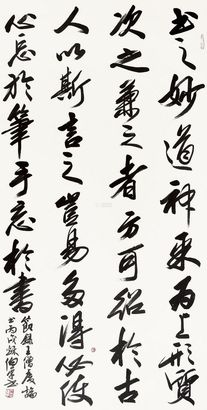 书之妙道神采为上形質
次之兼之者方可绍於古
人以斯言之豈易多得必使
心忘於筆手忘於書
節錄王僧虔論
书丙戌